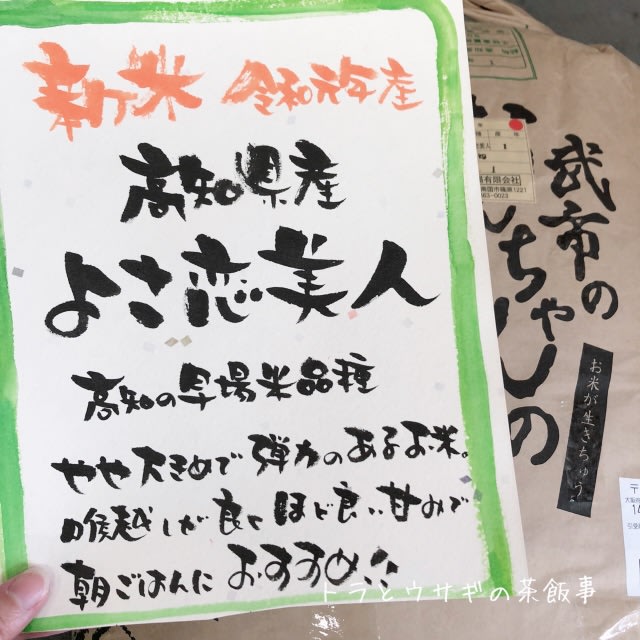 新米 令和元年産
高知県産
よさ恋美人
高知の早場米品種
やや大きめで弾力のあるお米。
喉越しが良くほど良い甘みで
朝ごはんにおすすめ!!
トラとウサギの茶飯事
武市の
ちゃんの
お米が生きちゅう
有限会社
南国市篠原1221
〒
大阪府